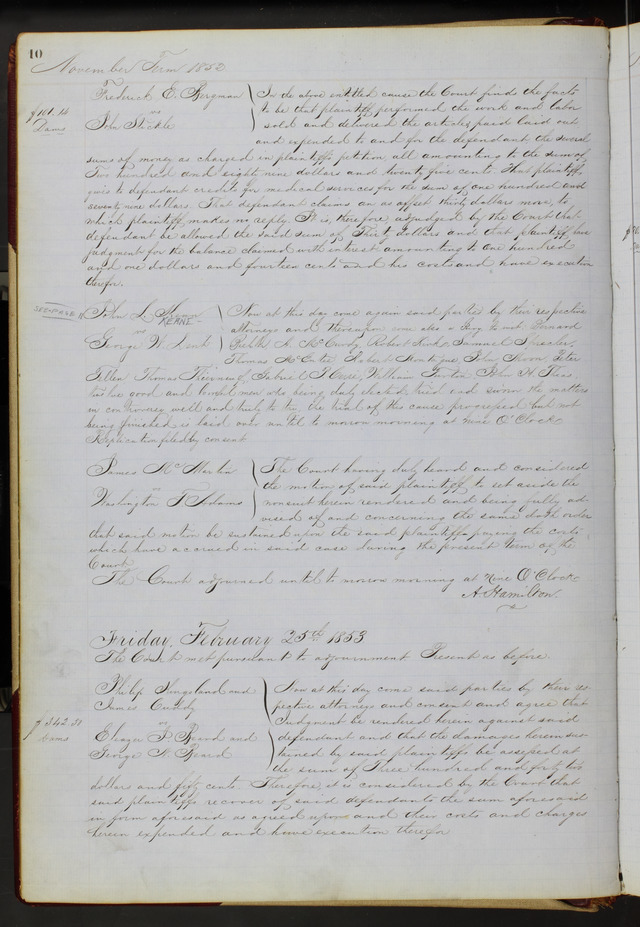 10
November Term 1852
Frederick E. Bergman
vs
John Stickle
$101.14
Dams
In the above entitled cause the Court finds the facts
to be that plaintiff performed the work and labor
sold and delivered the articles paid laid out
and expended to and for the defendant the several
sums of money as charged in plaintiffs petition all amounting to the sum of
Two hundred and eighty nine dollars and twenty five cents. That plaintiff
gives to defendant credits for medical services for the sum of one hundred and
seventy nine dollars. That defendant claims an as offset thirty dollars more, to
which plaintiff makes no reply. It is, therefore adjudged by the Court that
defendant be allowed the said sum of Thirty dollars and that plaintiff have
judgment for the balance claimed with interest amounting to One hundred
and one dollars and fourteen cents and his costs and have execution
therefor.
SEE PAGE
John L.
KEANE
vs
George W.
Now at this day come again said parties by their respective
attorneys and thereupon come also a Jury to wit Bernard
McCurdy, Robert Samuel
Thomas McEntee Robert John Peter
Thomas Gabriel William John H.
twelve good and lawful men who being duly elected, tried and sworn the matters
in controversy well and truly to try, the trial of this cause progressed but not
being finished is laid over until to morrow morning at nine O'Clock
Replication filed by consent
James McMartin
vs
Washington F Adams
The Court having duly heard and considered
the motion of said plaintiff to set aside the
nonsuit herein rendered and being fully ad-
vised of and concerning the same doth order
that said motion be sustained upon the said plaintiffs paying the costs
which have accrued in said case during the present term of the
Court
The Court adjourned until to morrow morning at Nine O'Clock
A Hamilton
Friday, February 25th 1853
The Court met pursuant to adjournment Present as before.
Philip Kingsland and
James Cuddy
vs
F Beard and
George Beard
$342.50
Dams
Now at this day come said parties by their res-
pective attorneys and consent and agree that
Judgment be rendered herein against said
defendant and that the damages herein sus-
tained by said plaintiffs be assessed at
the sum of Three hundred and forty two
dollars and fifty cents. Therefore, it is considered by the Court that
said plaintiffs recover of said defendants the sum aforesaid
in form aforesaid as agreed upon and their costs and charges
herein expended and have execution therefor